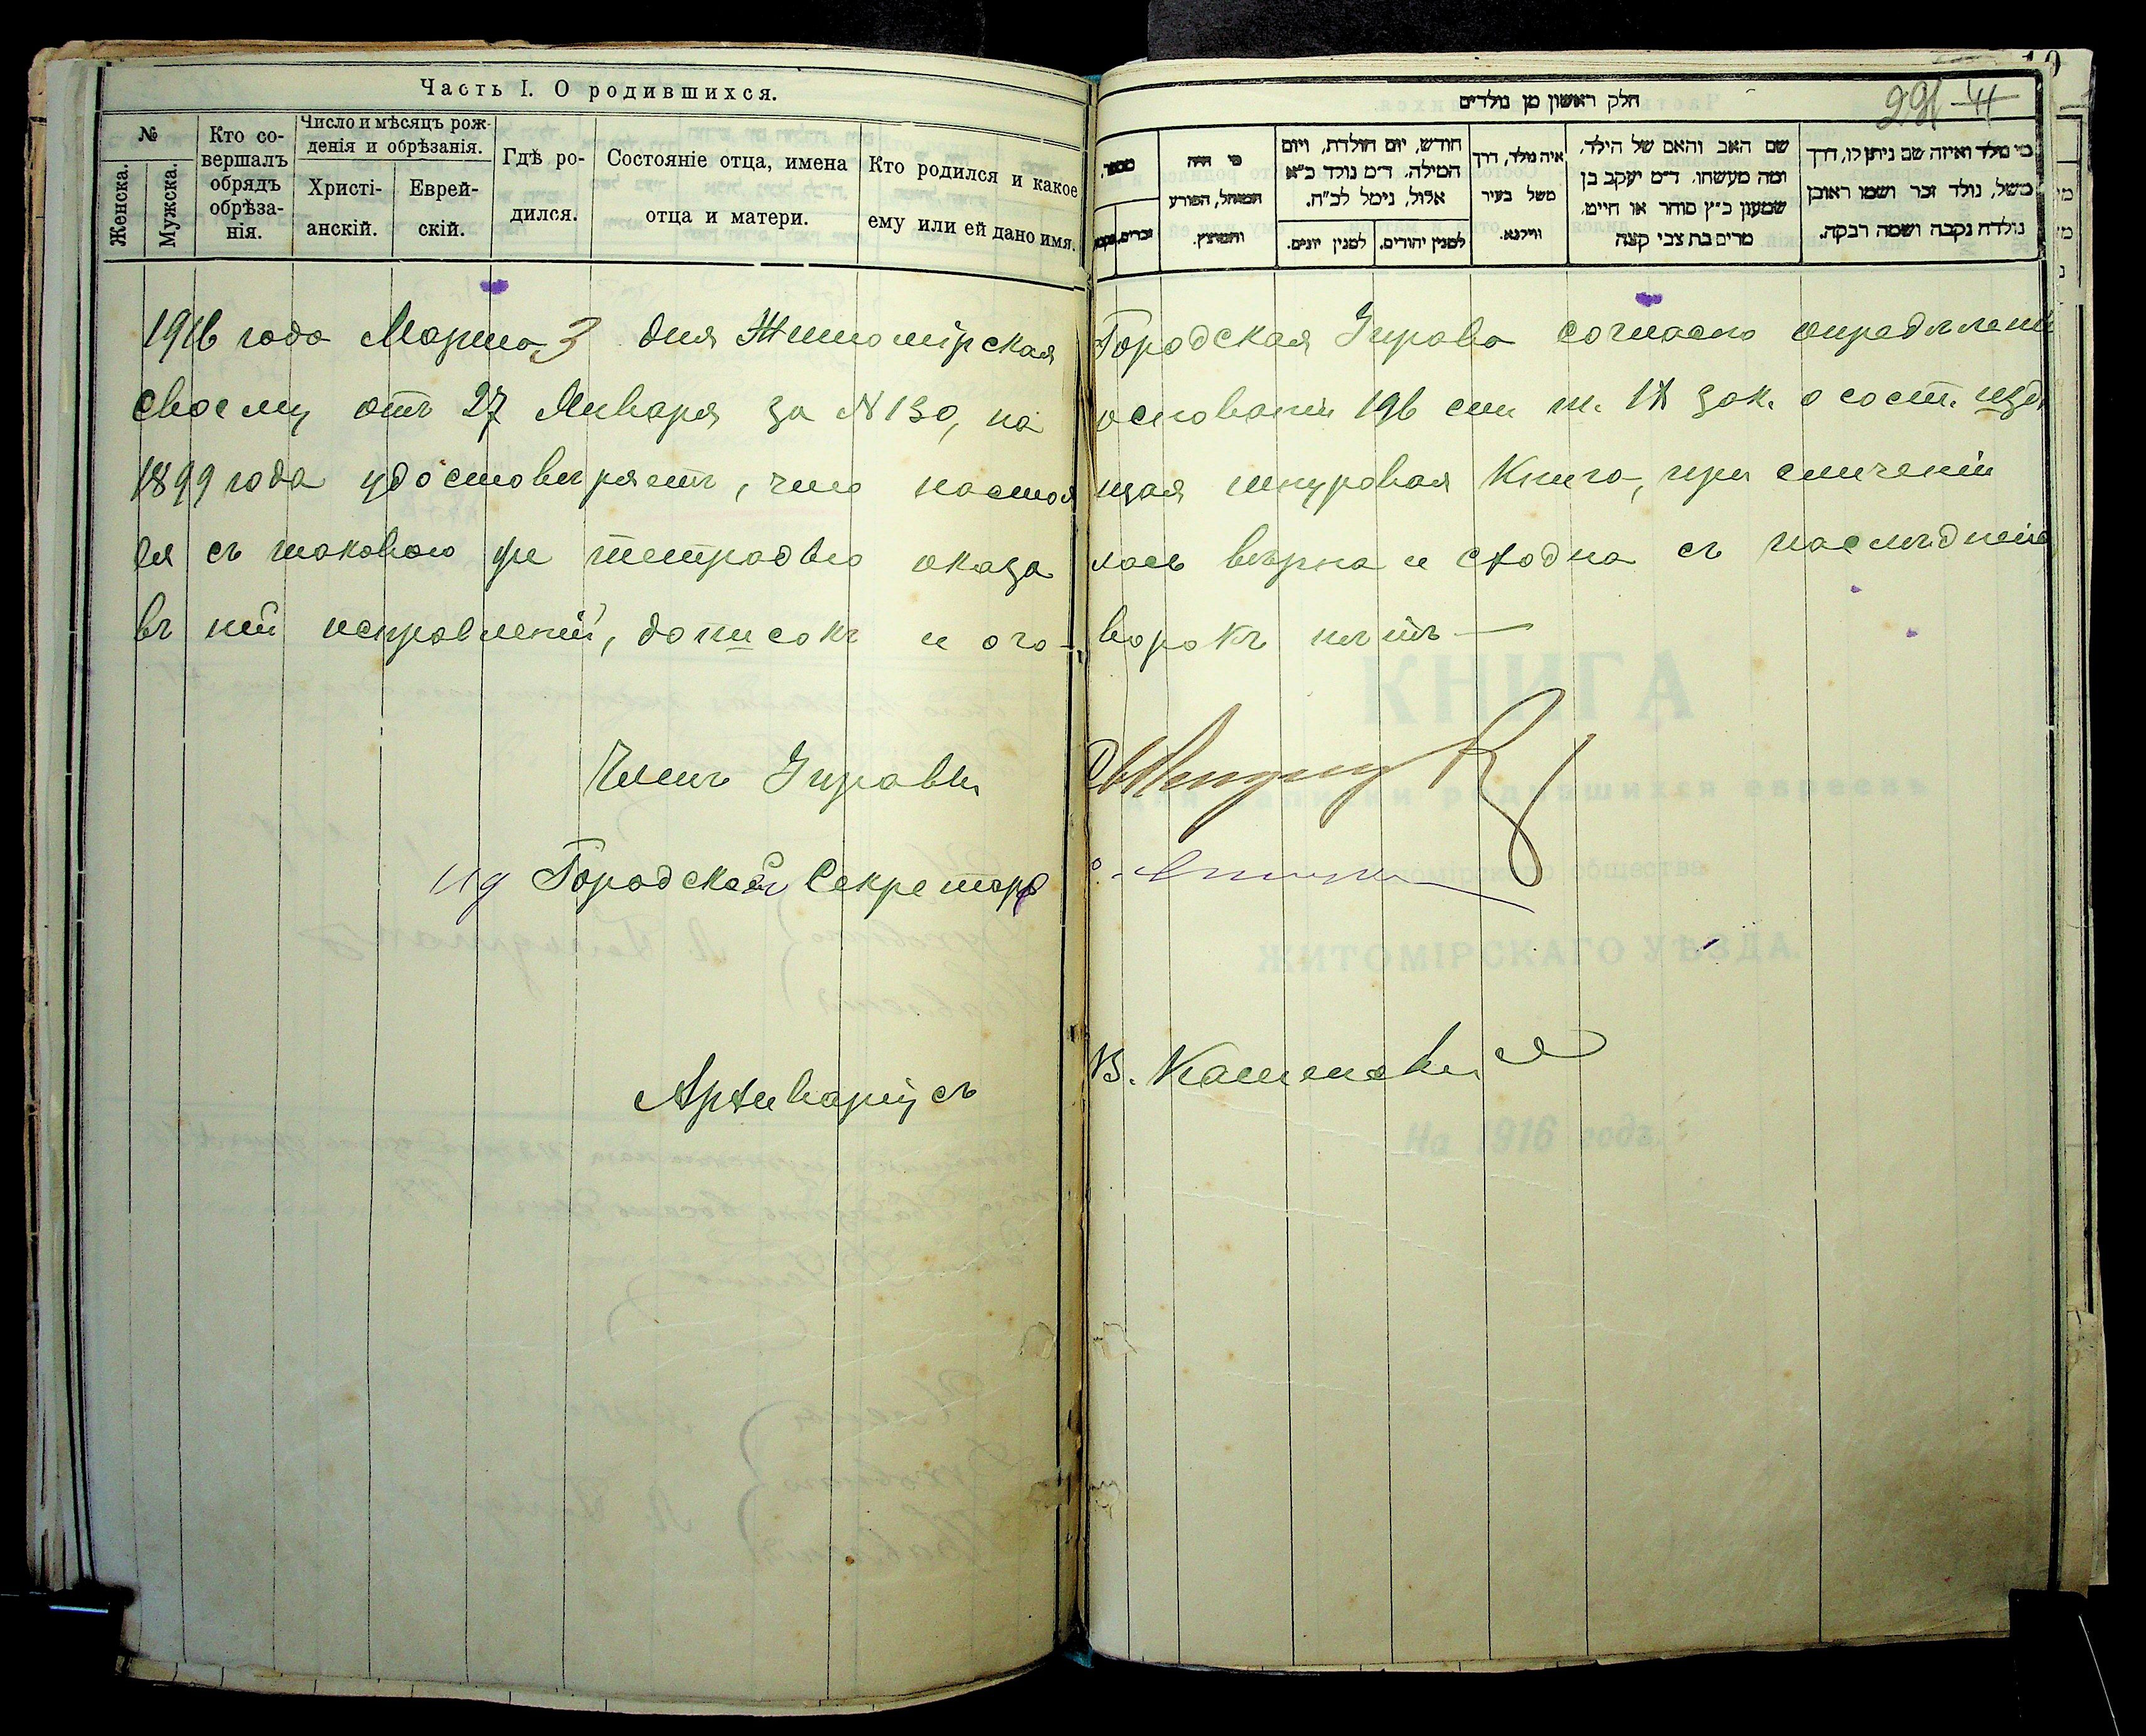 Часть I. О родившихся.
№
Женска.
Мужска.
Кто со-
вершалъ
обрядъ
обрѣза-
нія.
Число и мѣсяцъ рож-
денія и обрѣзанія.
Христі-
анскій.
Еврей-
скій.
Гдѣ ро-
дился.
Состояніе отца, имена
отца и матери.
Кто родился и какое
ему или ей дано имя.
חלק ראשון מן נולדים
מי נולד ואיזה שם ניתן לו, דרך
משל, נולד זכר ושמו ראובן
נולדה נקבה ושמה רבקה.
שם האב והאם של הילד,
ומה מעשהו. ד״מ יעקב בן
שמעון כ״ץ סוחר או חייט,
מרים בת צבי קצה
איה נולד, דרך
משל בעיר
ווילנא.
חודש, יום הולדת, ויום
המילה. ד״מ נולד כ״א
אלול, נימל לכ״ח.
למנין יהודים.
למנין יונים.
מי היה
המוהל, הפורע
והמוצץ.
מספר.
זכרים.
1916 года Марта 3 дня Житомірская Городская Управа согласно опредѣленію
своему отъ 27 Января за N 130, на основаніи 196 ст. т. IX зак. о сост. изд.
1899 года удостовѣряетъ, что настоящая шнуровая Книга, при сличеніи
ея съ таковою же тетрадью оказалась вѣрна и сходна съ послѣднею,
въ ней исправленій, дописокъ и оговорокъ нѣтъ —
Членъ Управы
ИД Городской Секретарь
Архиваріусъ В.
КНИГА
для записки родившихся евреевъ
Житомірскаго общества
ЖИТОМІРСКАГО УѢЗДА.
На 1916 годъ.